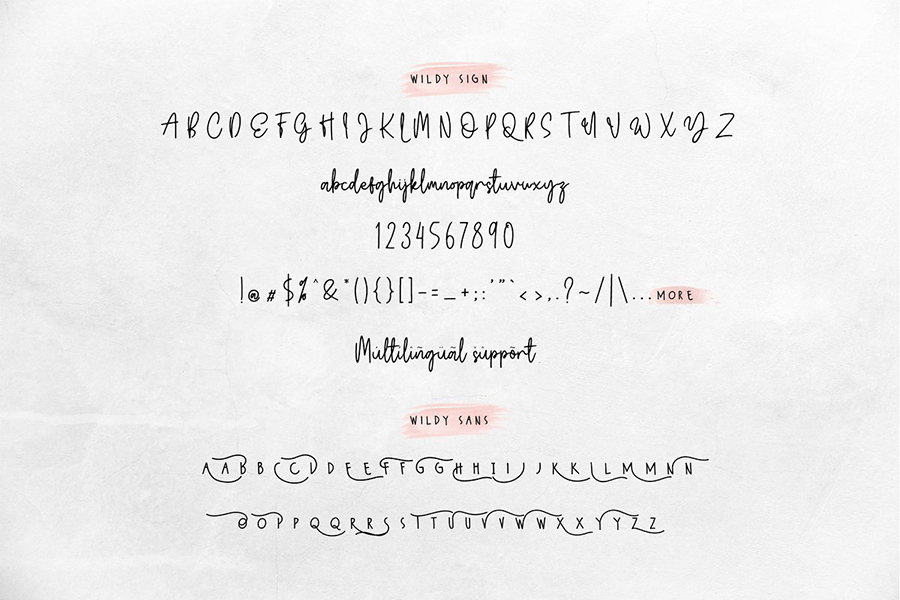 WILDY SIGN
ABCDEFGHIJKLMNOPQRSTUVWXYZ
abcdefghijklmnopqrstuvwxyz
1234567890
!@#$%^&*(){}[]-=_+;:'"`<>,.?~/|\...MORE
Mültilingüãl süppõrt
WILDY SANS
AABBCCDDEEFFGGHHIIJJKKLLMMNN
OOPPQQRRSSTTUUVVWWXXYYZZ